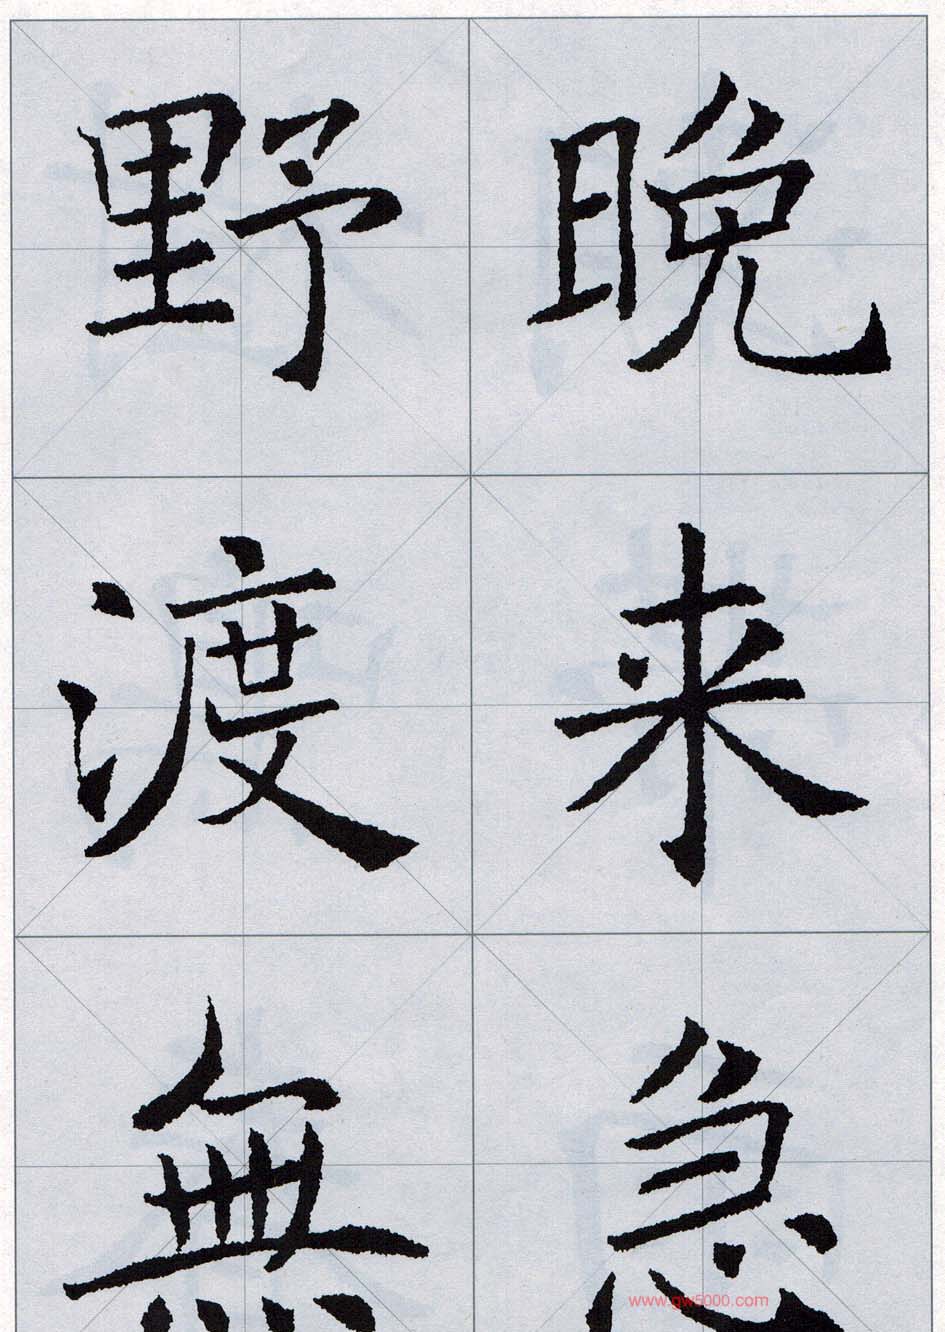 晚来急
野渡無
www.gw5000.com